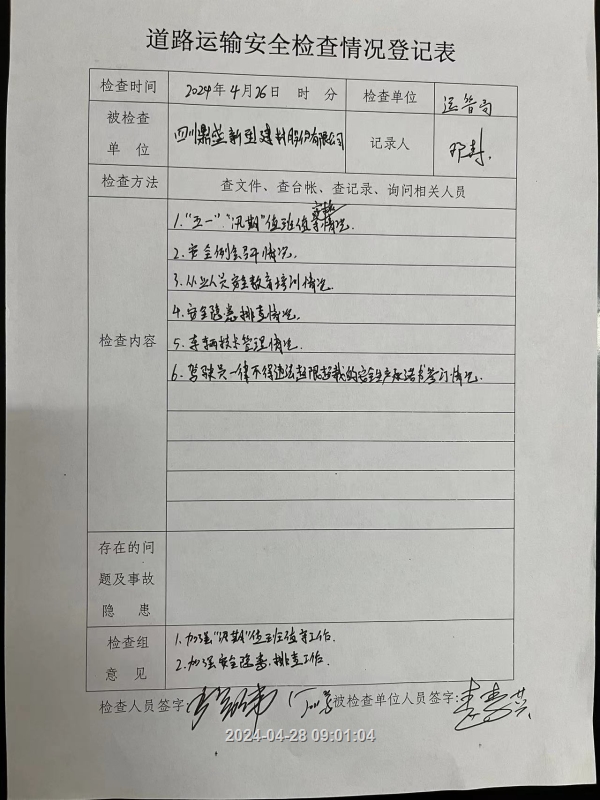 道路运输安全检查情况登记表
检查时间 2024年4月26日 时 分 检查单位 运管局
被检查单位 四川鼎盛新型建材股份有限公司 记录人
检查方法 查文件、查台帐、查记录、询问相关人员
检查内容
1."五一""汛期"值班值守情况.
2.安全例会召开情况.
3.从业人员安全教育培训情况.
4.安全隐患排查情况.
5.车辆技术管理情况.
6.驾驶员一律不得违法超限超载的安全生产承诺书签订情况.
存在的问
题及事故
隐 患
检查组 1.加强"汛期"值班值守工作.
意 见 2.加强安全隐患排查工作.
检查人员签字: 被检查单位人员签字:
2024-04-28 09:01:04